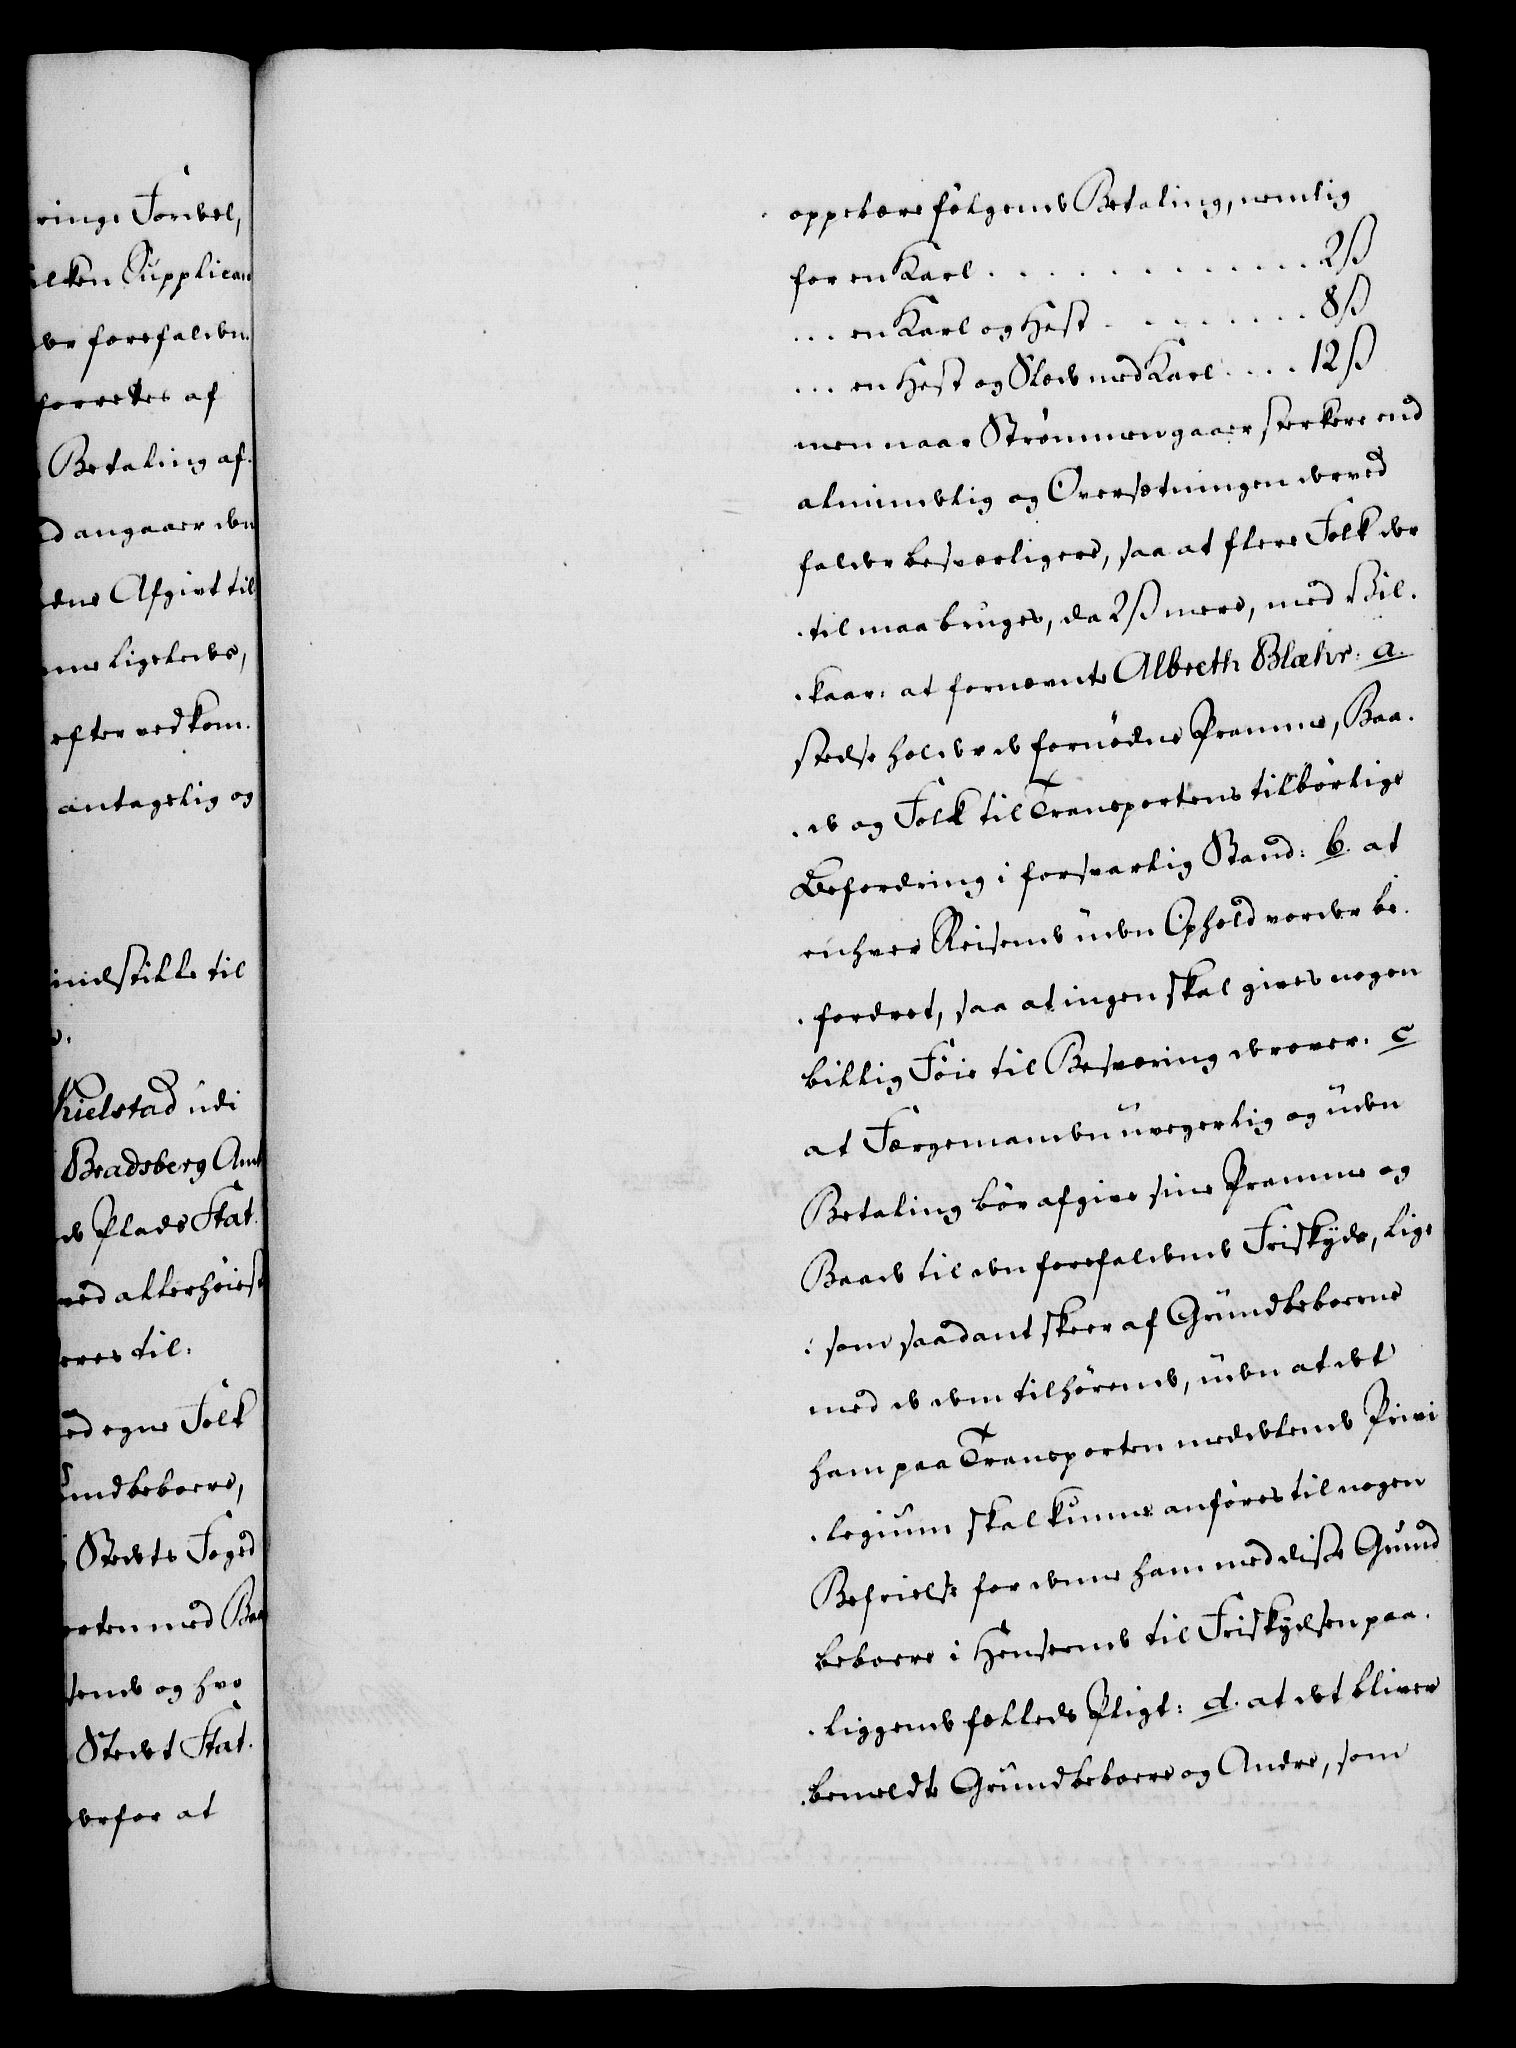 ringe Fordel,
ilken Supplican
der forefalden
forrettes af
Betaling af-
d angaaer den
dens Afgivt til
me ligeledes,
efter vedkom-
antagelig og
indstille til
Kielstad udi
Bradsberg Amt
de Plads Stat-
ved allerhøiest
eres til:
ed egne Folk
undbeboere,
Stedts Foged
orten med Baa
tende og hvo
Stedet Stat-
derfor at
oppebære følgende Betaling, nemlig
for en Karl . . . . . . . . . . . . 2 ß
... en Karl og Hest . . . . . . . . 8 ß
... en Hest og Slæde med Karl . . . . 12 ß
men naar Strømmen gaaer sterkere end
almindelig og Oversætningen derved
falder besværligere, saa at flere Folk der
-til maa bruges, da 2 ß mere, med Vil-
-kaar: at fornævnte Albreth Blæhr: a.
stedse holder de fornødne Pramme, Baa-
-de og Folk til Transportens tilbørlige
Befordring i forsvarlig Stand: b. at
enhver Reisende uden Ophold vorder be-
-fordret, saa at ingen skal gives nogen
billig Føie til Besværing derover. c
at Færgemanden uvegerlig og uden
Betaling bør afgive sine Pramme og
Baade til den forefaldende Friskyds, lige
-som saadant skeer af Grundbeboerne
med de dem tilhørende, uden at det
ham paa Transporten meddelende Privi
-legium skal kunne anføres til nogen
Befrielse for denne ham med disse Grund
beboere i Henseende til Friskydsen paa-
-liggende fælleds Pligt: d. at det bliver
bemeldte Grundbeboere og Andre, som